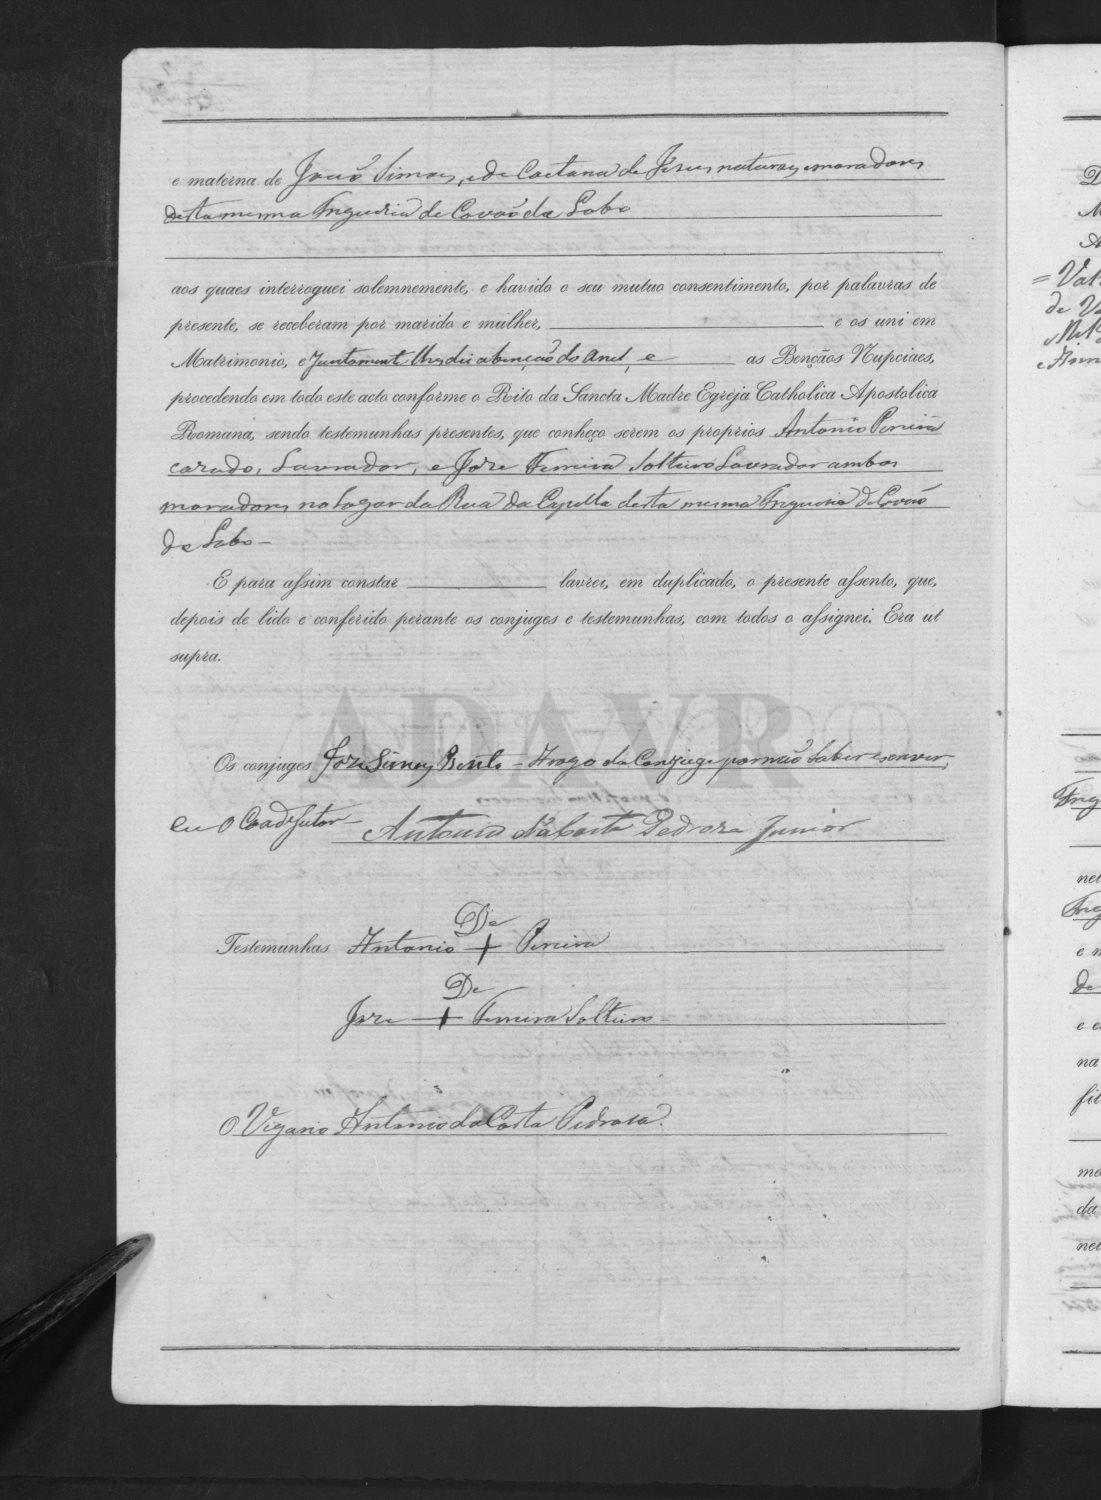 e materna de João Simões, e de Caetana de Jesus naturaes e moradores
desta mesma Freguesia de Covão do Lobo
aos quaes interroguei solemnemente, e havido o seu mutuo consentimento, por palavras de
presente, se receberam por marido e mulher, e os uni em
Matrimonio, e juntamente lhes dei a benção do anel, e as Bençãos Nupciaes,
procedendo em todo este acto conforme o Rito da Sancta Madre Egreja Catholica Apostolica
Romana, sendo testemunhas presentes, que conheço serem os proprios Antonio Pereira
cazado, Lavrador, e Joze Ferreira Solteiro Lavrador ambos
moradores no Logar da Rua da Capella desta mesma Freguesia de Covão
do Lobo
E para assim constar lavrei, em duplicado, o presente assento, que,
depois de lido e conferido perante os conjuges e testemunhas, com todos o assignei. Era ut
supra.
ADAVR
Os conjuges Joze Simoes Bento - A rogo da Conjuge por não saber escrever,
eu O Coadjutor Antonio da Costa Pedroza Junior
De
Testemunhas Antonio + Pereira
De
Joze + Ferreira Solteiro
O Vigario Antonio da Costa Pedrosa.